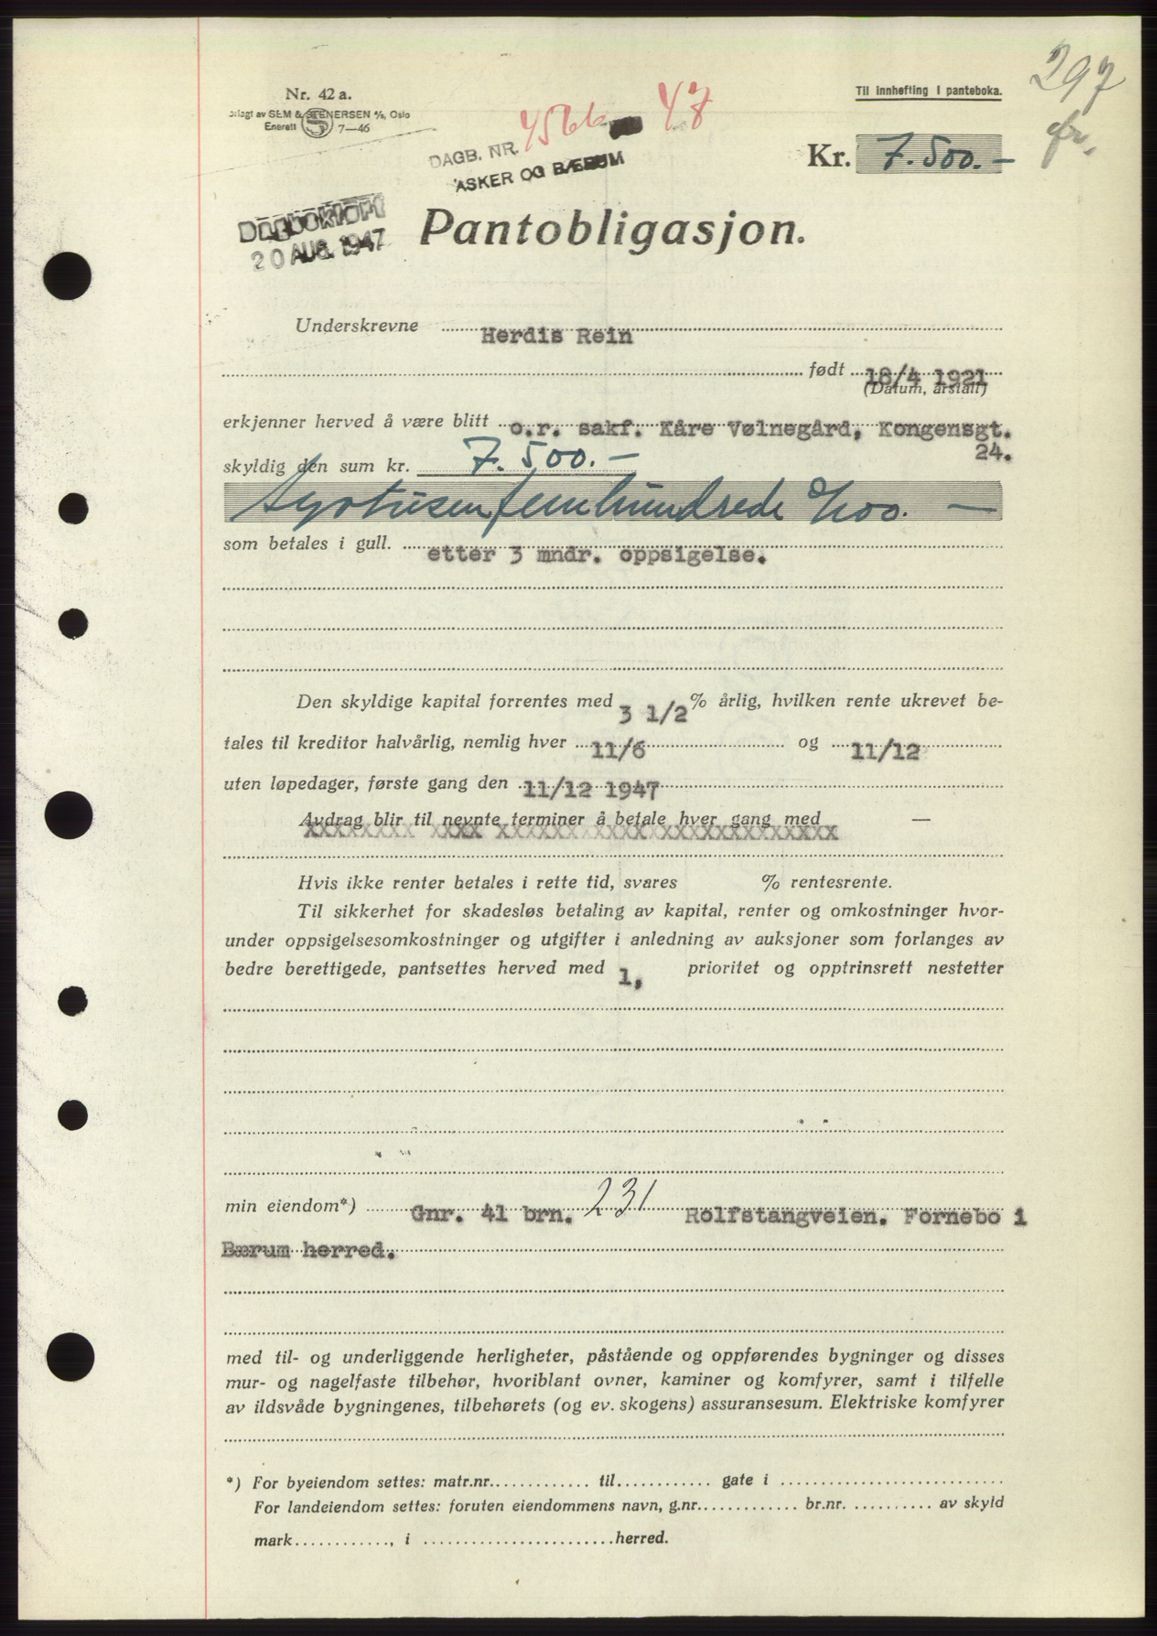 297
Nr. 42 a.
SEM & STENERSEN A/S, Oslo
Enerett S 7—46
Til innhefting i panteboka.
DAGB. NR. 4566 47
ASKER OG BÆRUM
Kr. 7.500.—
Dagbokført
20 AUG. 1947
Pantobligasjon.
Underskrevne Herdis Rein
født 18/4 1921
(Datum, årstall)
erkjenner herved å være blitt o.r. sakf. Kåre Vølnegård, Kongensgt.
24.
skyldig den sum kr. 7.500.—
Syvtusenfemhundrede 0/100.—
som betales i gull. etter 3 mndr. oppsigelse.
Den skyldige kapital forrentes med 3 1/2 % årlig, hvilken rente ukrevet be-
tales til kreditor halvårlig, nemlig hver 11/6 og 11/12
uten løpedager, første gang den 11/12 1947
Avdrag blir til nevnte terminer å betale hver gang med —
Hvis ikke renter betales i rette tid, svares % rentesrente.
Til sikkerhet for skadesløs betaling av kapital, renter og omkostninger hvor-
under oppsigelsesomkostninger og utgifter i anledning av auksjoner som forlanges av
bedre berettigede, pantsettes herved med 1, prioritet og opptrinsrett nestetter
min eiendom*) Gnr. 41 brn. 231 Rolfstangveien. Fornebo i
Bærum herred.
med til- og underliggende herligheter, påstående og oppførendes bygninger og disses
mur- og nagelfaste tilbehør, hvoriblant ovner, kaminer og komfyrer, samt i tilfelle
av ildsvåde bygningenes, tilbehørets (og ev. skogens) assuransesum. Elektriske komfyrer
*) For byeiendom settes: matr.nr. til gate i
For landeiendom settes: foruten eiendommens navn, g.nr. br.nr. av skyld
mark , i herred.